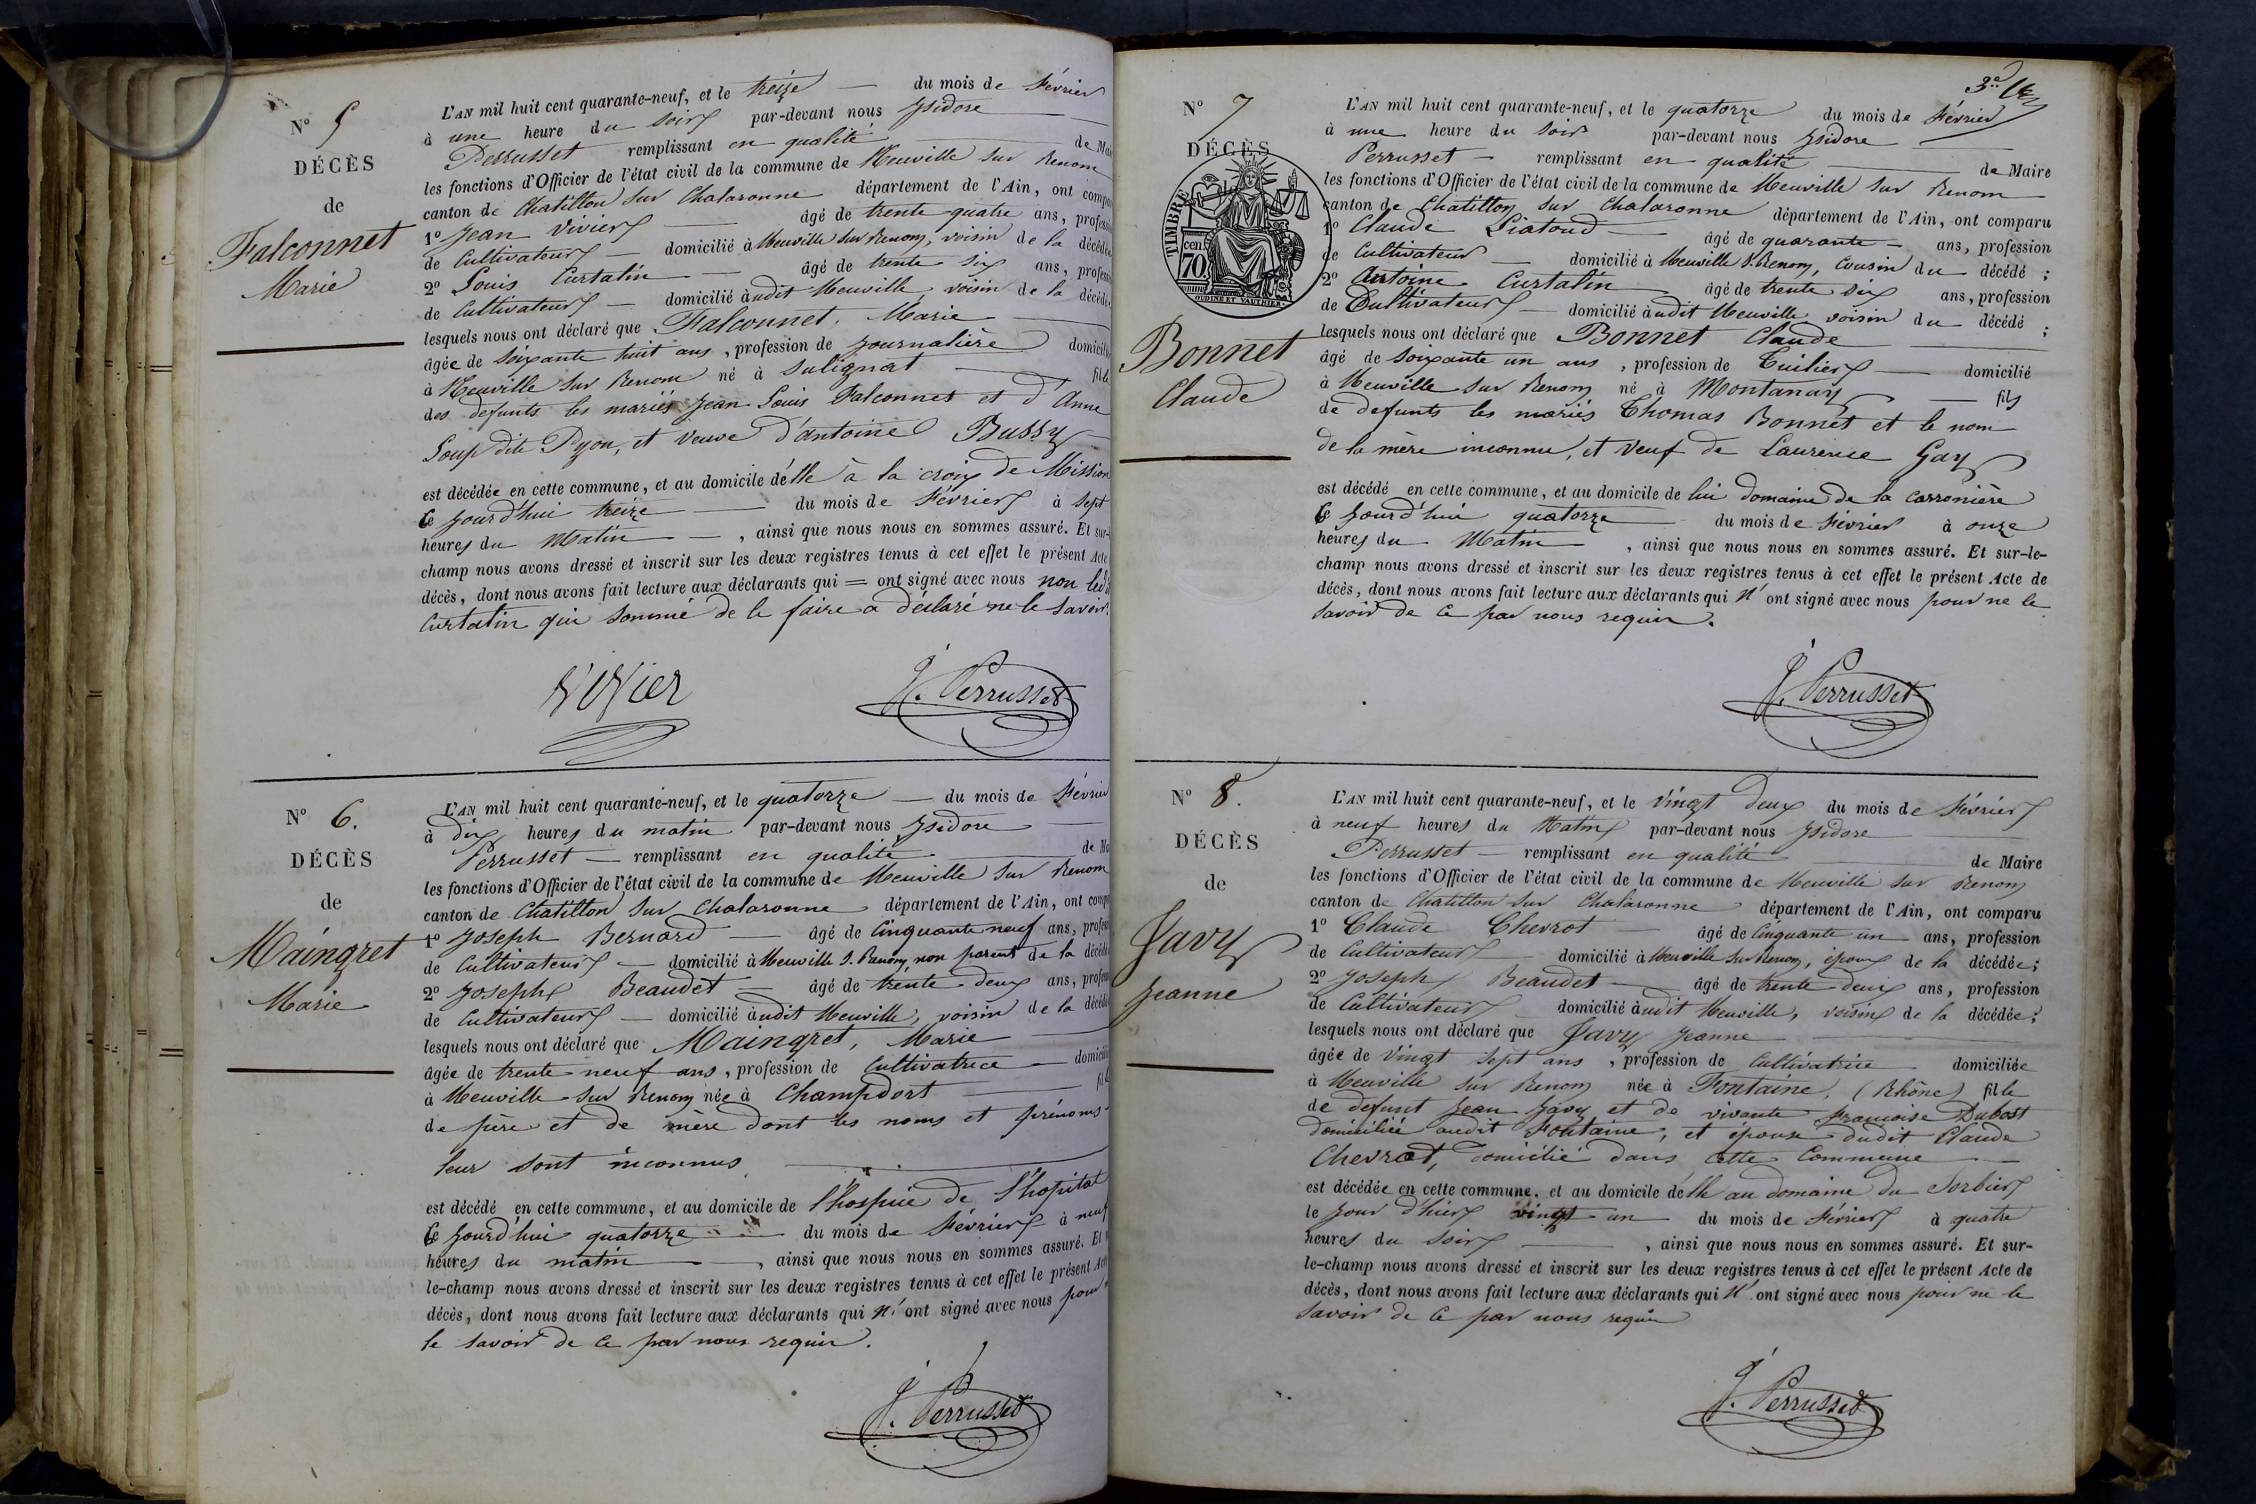 N° 5
DÉCÈS
de
Falconnet
Marie
L'AN mil huit cent quarante-neuf, et le treize — du mois de février
à une heure du soir par-devant nous Isidore —
Perrusset remplissant en qualité — de Mai
les fonctions d'Officier de l'état civil de la commune de Neuville sur Renom
canton de Chatillon sur Chalaronne département de l'Ain, ont compa
1° Jean Vivier — âgé de trente quatre ans, professi
de Cultivateur — domicilié à Neuville sur Renom, voisin de la décédée
2° Louis Curtalin — âgé de trente six ans, profess
de Cultivateur — domicilié audit Neuville voisin de la décédé
lesquels nous ont déclaré que Falconnet, Marie —
âgée de soixante huit ans, profession de journalière domicili
à Neuville sur Renom né à Sulignat — fille
des defunts les mariés Jean Louis Falconnet et d'Anne
Loup dite Pyon, et veuve d'antoine Bussy
est décédée en cette commune, et au domicile d'elle à la croix de Mission
ce jourd'hui treize — du mois de février à sept
heures du matin —, ainsi que nous nous en sommes assuré. Et sur-
champ nous avons dressé et inscrit sur les deux registres tenus à cet effet le présent Acte
décès, dont nous avons fait lecture aux déclarants qui = ont signé avec nous non led
Curtalin qui sommé de le faire a déclaré ne le savoir.
Vivier J. Perrusset
N° 6.
DÉCÈS
de
Maingret
Marie
L'AN mil huit cent quarante-neuf, et le quatorze — du mois de février
à dix heures du matin par-devant nous Isidore —
Perrusset — remplissant en qualité — de Ma
les fonctions d'Officier de l'état civil de la commune de Neuville sur Renom
canton de Chatillon sur Chalaronne département de l'Ain, ont comp
1° Joseph Bernard — âgé de cinquante neuf ans, profess
de Cultivateur — domicilié à Neuville S. Renom non parent de la décédé
2° Joseph Beaudet — âgé de trente deux ans, profess
de Cultivateur — domicilié audit Neuville, voisin de la décédé
lesquels nous ont déclaré que Maingret, Marie —
âgée de trente neuf ans, profession de Cultivatrice — domicili
à Neuville sur Renom née à Champdort — fil
de père et de mère dont les noms et prénoms
leur sont inconnus —
est décédé en cette commune, et au domicile de l'hospice de l'hopital
ce jourd'hui quatorze — du mois de février à neuf
heures du matin —, ainsi que nous nous en sommes assuré. Et
le-champ nous avons dressé et inscrit sur les deux registres tenus à cet effet le présent Acte
décès, dont nous avons fait lecture aux déclarants qui n'ont signé avec nous pour
le savoir de ce par nous requir.
J. Perrusset
3e
N° 7
DÉCÈS
TIMBRE
70 cen
OUDINE ET VAUTHIER
Bonnet
Claude
L'AN mil huit cent quarante-neuf, et le quatorze du mois de février
à une heure du soir par-devant nous Isidore —
Perrusset — remplissant en qualité — de Maire
les fonctions d'Officier de l'état civil de la commune de Neuville sur Renom
canton de Chatillon sur Chalaronne département de l'Ain, ont comparu
1° Claude Liatoud — âgé de quarante — ans, profession
de Cultivateur — domicilié à Neuville S. Renom, cousin du décédé ;
2° Antoine Curtalin — âgé de trente six ans, profession
de Cultivateur — domicilié audit Neuville voisin du décédé ;
lesquels nous ont déclaré que Bonnet Claude —
âgé de soixante un ans, profession de Tuilier — domicilié
à Neuville sur Renom né à Montanay — fils
de defunts les mariés Thomas Bonnet et le nom
de la mère inconnu, et veuf de Laurence Gay
est décédé en cette commune, et au domicile de lui domaine de la carronière
ce jourd'hui quatorze — du mois de février à onze
heures du matin —, ainsi que nous nous en sommes assuré. Et sur-le-
champ nous avons dressé et inscrit sur les deux registres tenus à cet effet le présent Acte de
décès, dont nous avons fait lecture aux déclarants qui n'ont signé avec nous pour ne le
savoir de ce par nous requir.
J. Perrusset
N° 8.
DÉCÈS
de
Javy
Jeanne
L'AN mil huit cent quarante-neuf, et le vingt deux du mois de février
à neuf heures du matin par-devant nous Isidore —
Perrusset — remplissant en qualité — de Maire
les fonctions d'Officier de l'état civil de la commune de Neuville sur Renom
canton de Chatillon sur Chalaronne département de l'Ain, ont comparu
1° Claude Chevrot — âgé de cinquante un ans, profession
de Cultivateur — domicilié à Neuville sur Renom, époux de la décédée;
2° Joseph Beaudet — âgé de trente deux ans, profession
de Cultivateur domicilié audit Neuville, voisin de la décédée;
lesquels nous ont déclaré que Javy Jeanne —
âgée de vingt sept ans, profession de Cultivatrice domiciliée
à Neuville sur Renom née à Fontaine, (Rhône) fille
de defunt Jean Javy et de vivante Francoise Dubost
domiciliée audit Fontaine, et épouse dudit Claude
Chevrot, domicilié dans cette Commune —
est décédée en cette commune, et au domicile d'elle au domaine du Sorbier
le jour d'hier vingt un du mois de février à quatre
heures du soir —, ainsi que nous nous en sommes assuré. Et sur-
le-champ nous avons dressé et inscrit sur les deux registres tenus à cet effet le présent Acte de
décès, dont nous avons fait lecture aux déclarants qui n'ont signé avec nous pour ne le
savoir de ce par nous requir
J. Perrusset